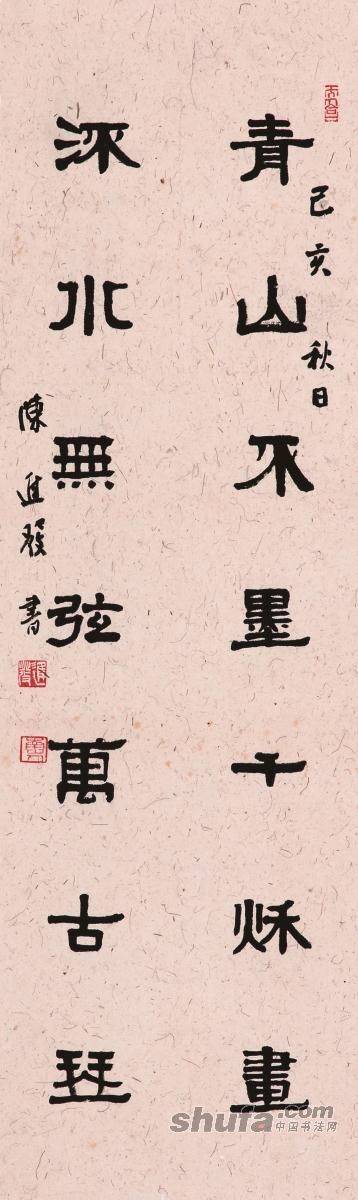 己亥秋日
青山不墨千秌畫
流水無弦萬古琴
陳進發書
shufa.com
中国书法网